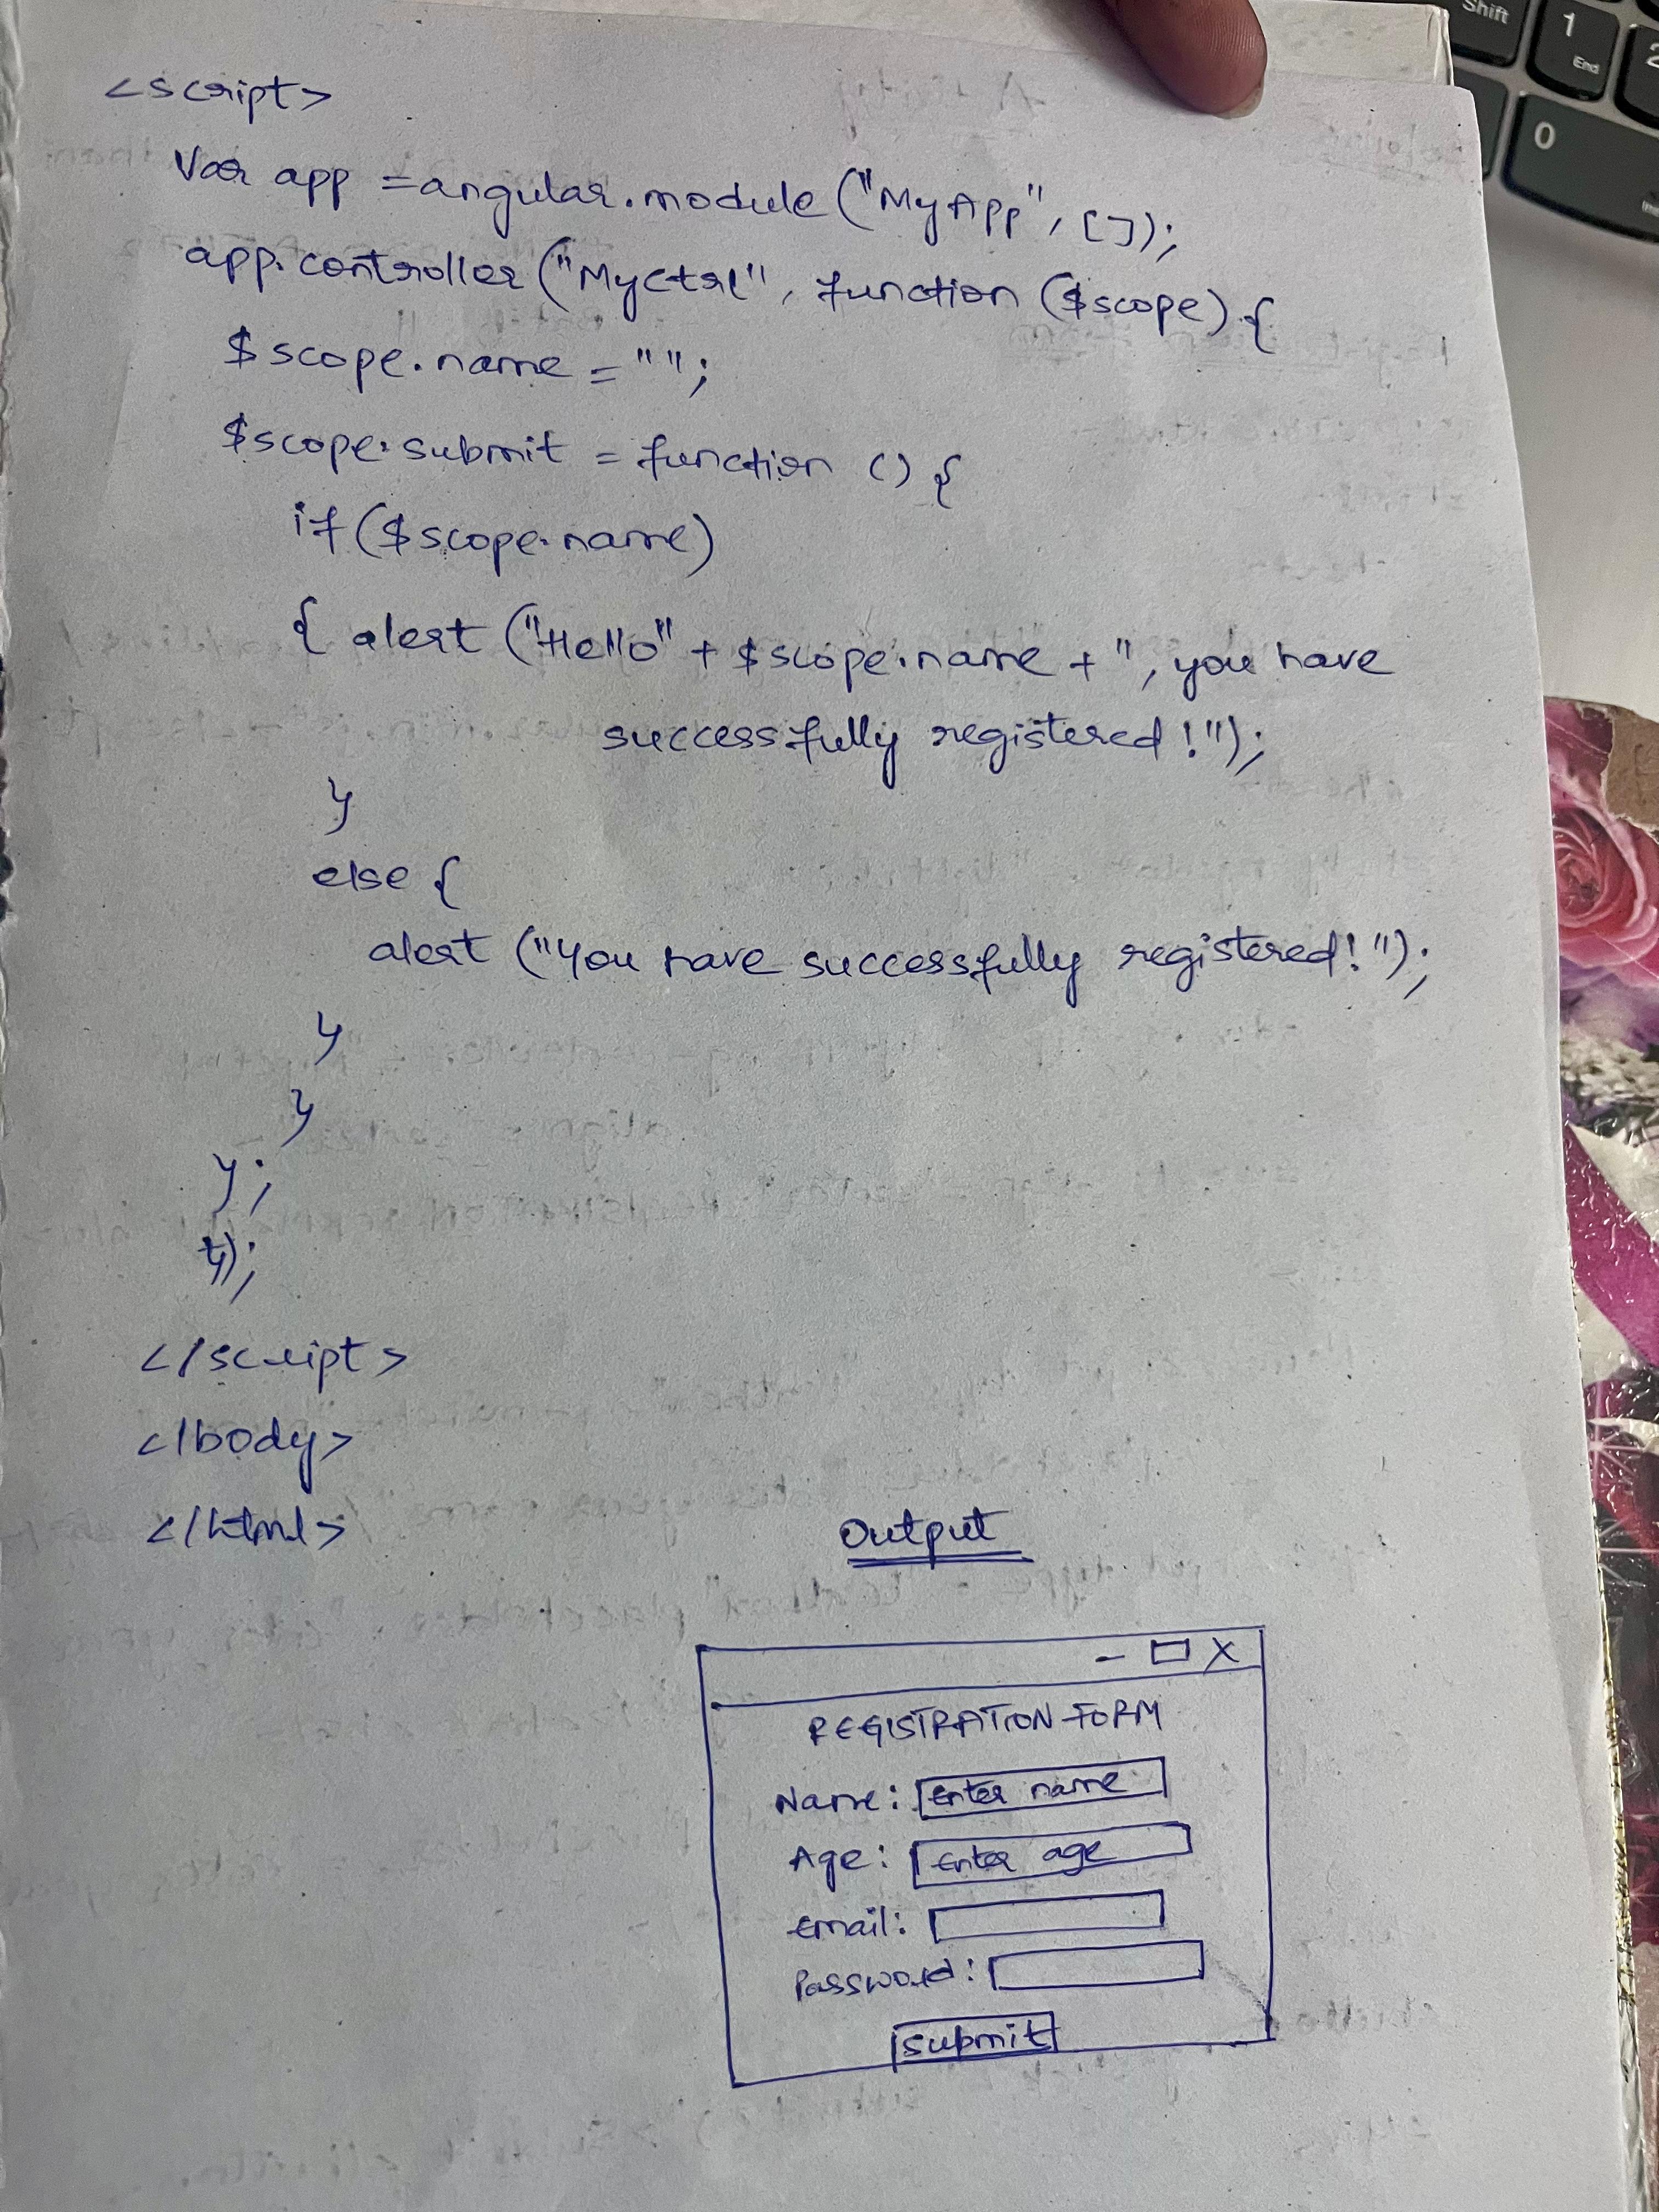 Shift
1
End
2
0
<script>
Var app = angular.module ("MyApp", []);
app.controller ("MyCtrl", function ($scope) {
$scope.name = "";
$scope.submit = function () {
if ($scope.name)
{ alert ("Hello" + $scope.name + ", you have
successfully registered!");
}
else {
alert ("You have successfully registered!");
}
}
};
});
</script>
</body>
</html>
Output
- □ X
REGISTRATION FORM
Name: Enter name
Age: Enter age
Email:
Password:
Submit